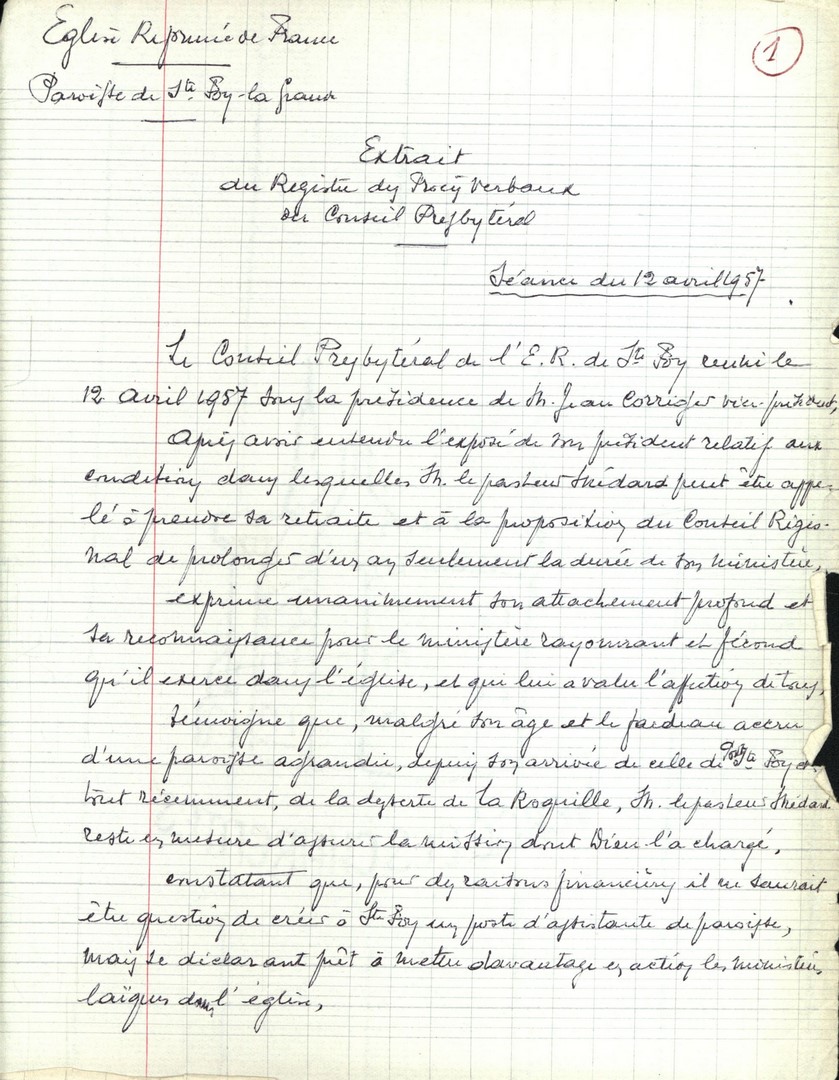 Eglise Réformée de France
1
Paroisse de Ste Foy-la Grande
Extrait
du Registre des Procès Verbaux
du Conseil Presbytéral
Séance du 12 avril 1957
Le Conseil Presbytéral de l'E. R. de Ste Foy réuni le
12 avril 1957 sous la présidence de M. Jean Corriger vice-président,
Après avoir entendu l'exposé de son président relatif aux
conditions dans lesquelles M. le pasteur Médard peut être appe-
lé à prendre sa retraite et à la proposition du Conseil Régio-
nal de prolonger d'un an seulement la durée de son ministère,
exprime unanimement son attachement profond et
sa reconnaissance pour le ministère rayonnant et fécond
qu'il exerce dans l'église, et qui lui a valu l'affection de tous,
témoigne que, malgré son âge et le fardeau accru
d'une paroisse agrandie, depuis son arrivée de celle de Ste Foy et
tout récemment, de la desserte de La Roquille, M. le pasteur Médard
reste en mesure d'assurer la mission dont Dieu l'a chargé,
constatant que, pour des raisons financières il ne saurait
être question de créer à Ste Foy un poste d'assistante de paroisse,
mais se déclarant prêt à mettre davantage en action les ministères
laïques dans l'église,